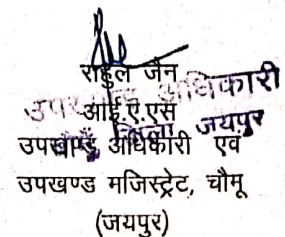 राहुल जैन
आई.ए.एस
उपखण्ड अधिकारी एवं
उपखण्ड मजिस्ट्रेट, चौमू
(जयपुर)
उपखण्ड अधिकारी
जिला जयपुर